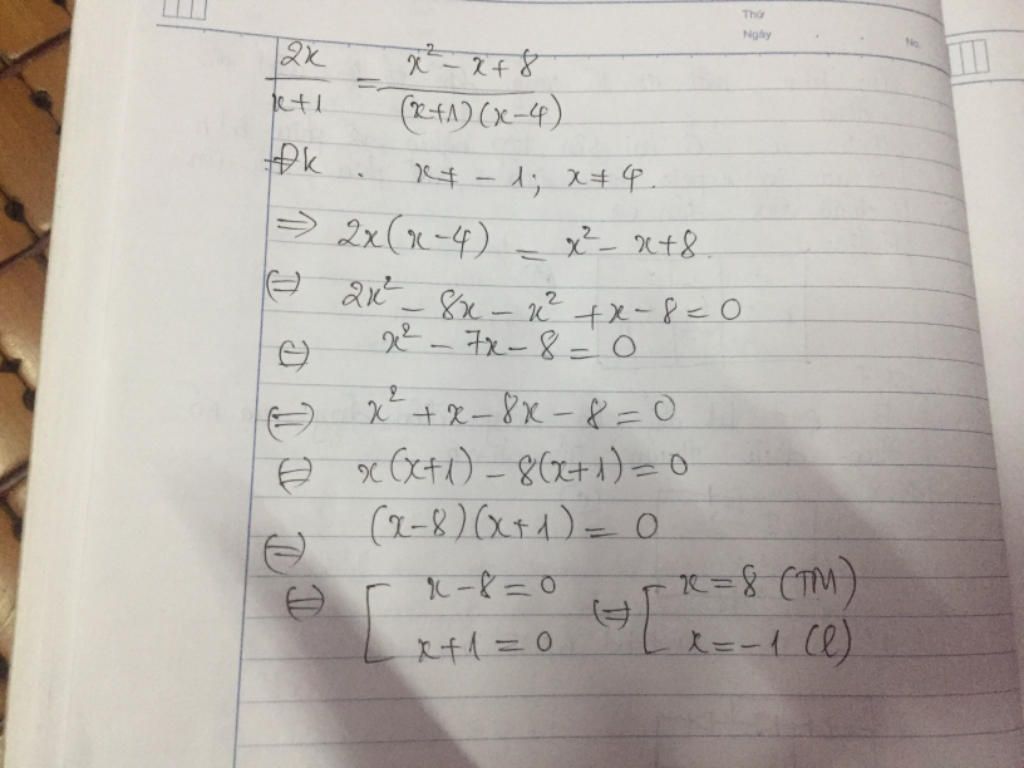 Thứ
Ngày . . No.
2x/(x+1) = (x² - x + 8)/((x+1)(x-4))
Đk . x ≠ -1; x ≠ 4.
=> 2x(x-4) = x² - x + 8.
(=) 2x² - 8x - x² + x - 8 = 0
(=) x² - 7x - 8 = 0
(=) x² + x - 8x - 8 = 0
(=) x(x+1) - 8(x+1) = 0
(=) (x-8)(x+1) = 0
(=) [ x - 8 = 0 (=) [ x = 8 (TM)
x + 1 = 0 x = -1 (l)